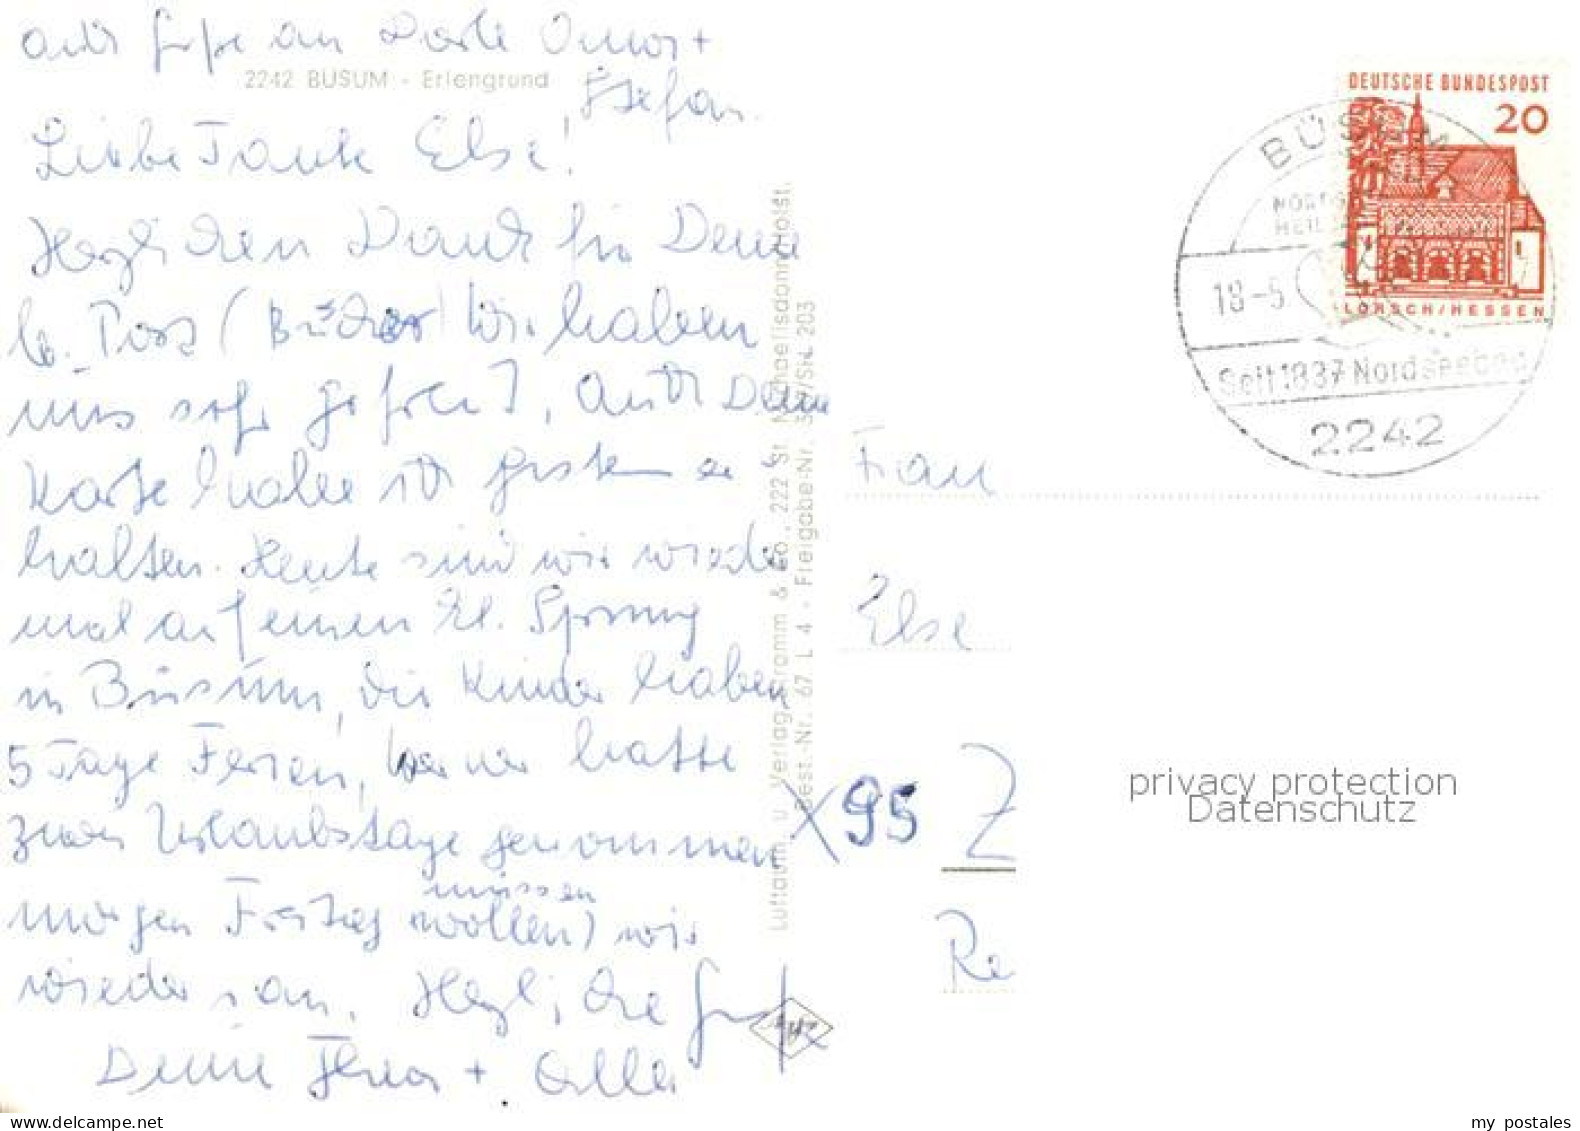 auch Grüße an Dörte Omar +
Stefan.
2242 BÜSUM - Erlengrund
Liebe Tante Else!
Herzlichen Dank für Deine
lb. Post (Bücher) Wir haben
uns sehr gefreut, auch Deine
Karte habe ich gestern er
halten. Heute sind wir wieder
mal auf einen kl. Sprung
in Büsum, die Kinder haben
5 Tage Ferien, Werner hatte
zwei Urlaubstage genommen
müssen
morgen Freitag wollen) wir
wieder Herzliche Grüße
Deine + alle
Luftaufn. u. Verlag Gramm & Co., 222 St. Michaelisdonn/Holst.
Best.-Nr. 67 L 4 - Freigabe-Nr. SH 203
DEUTSCHE BUNDESPOST
20
LORSCH/HESSEN
BÜSUM
NORDS
HEIL
18-5
Seit 1837 Nordseebad
2242
Frau
Else
X95 Z
Re
privacy protection
Datenschutz
www.delcampe.net
my postales